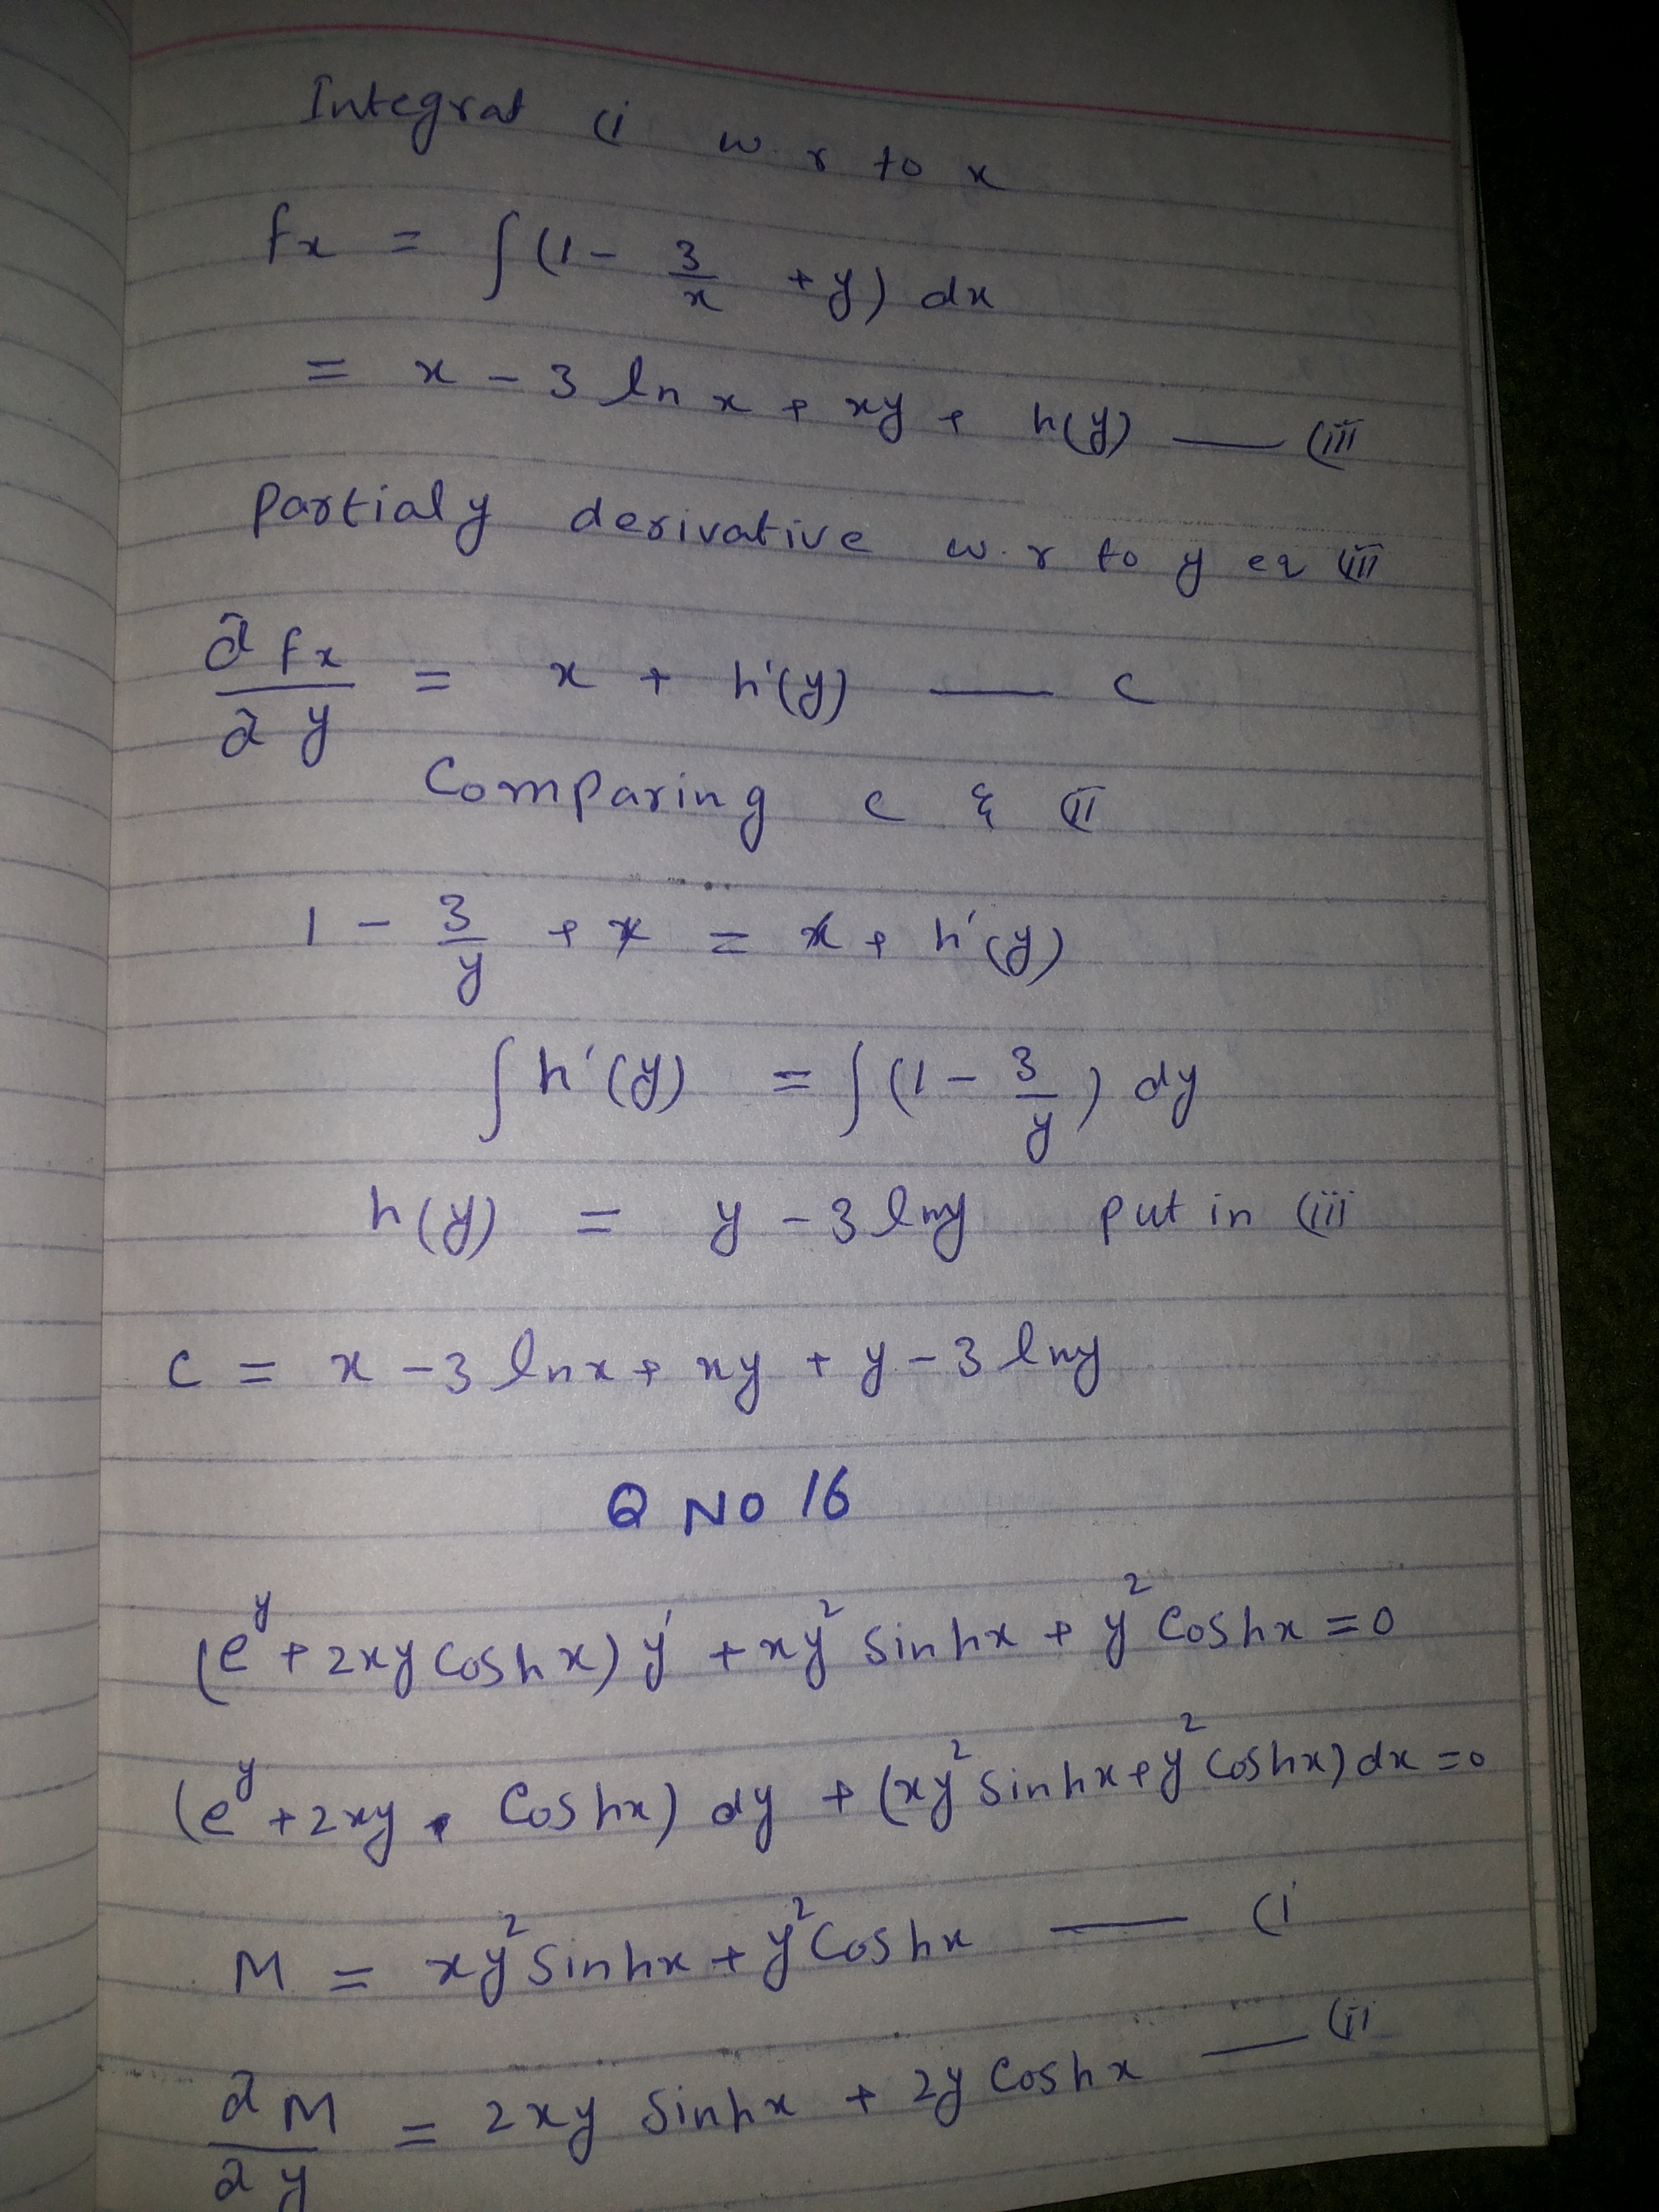 Integrat (i w.r to x
fx = ∫(1 - 3/x + y) dx
= x - 3 ln x + xy + h(y) — (iii
Partialy derivative w.r to y eq (iii
∂fx/∂y = x + h'(y) — c
Comparing c & (ii
1 - 3/y + x = x + h'(y)
∫h'(y) = ∫(1 - 3/y) dy
h(y) = y - 3 lny put in (iii
c = x - 3 lnx + xy + y - 3 lny
Q NO 16
(e^y + 2xy coshx) y' + xy² sinhx + y² Coshx = 0
(e^y + 2xy . Coshx) dy + (xy² sinhx + y² coshx) dx = 0
M = xy² sinhx + y² Coshx — (i
∂M/∂y = 2xy sinhx + 2y Coshx — (ii